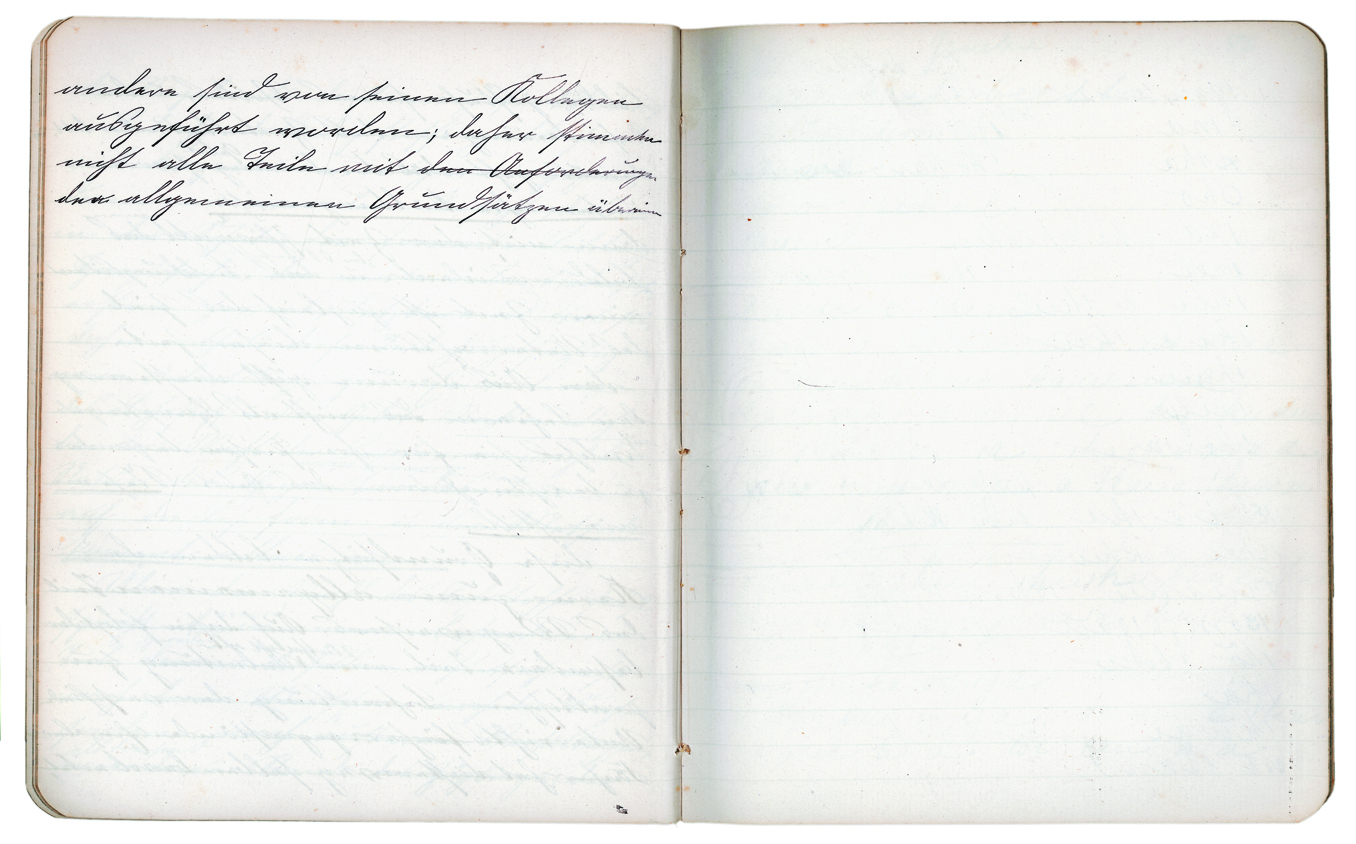 andere sind von seinen Kollegen
ausgeführt worden; daher stimmen
nicht alle Teile mit den Anforderungen
den allgemeinen Grundsätzen überein